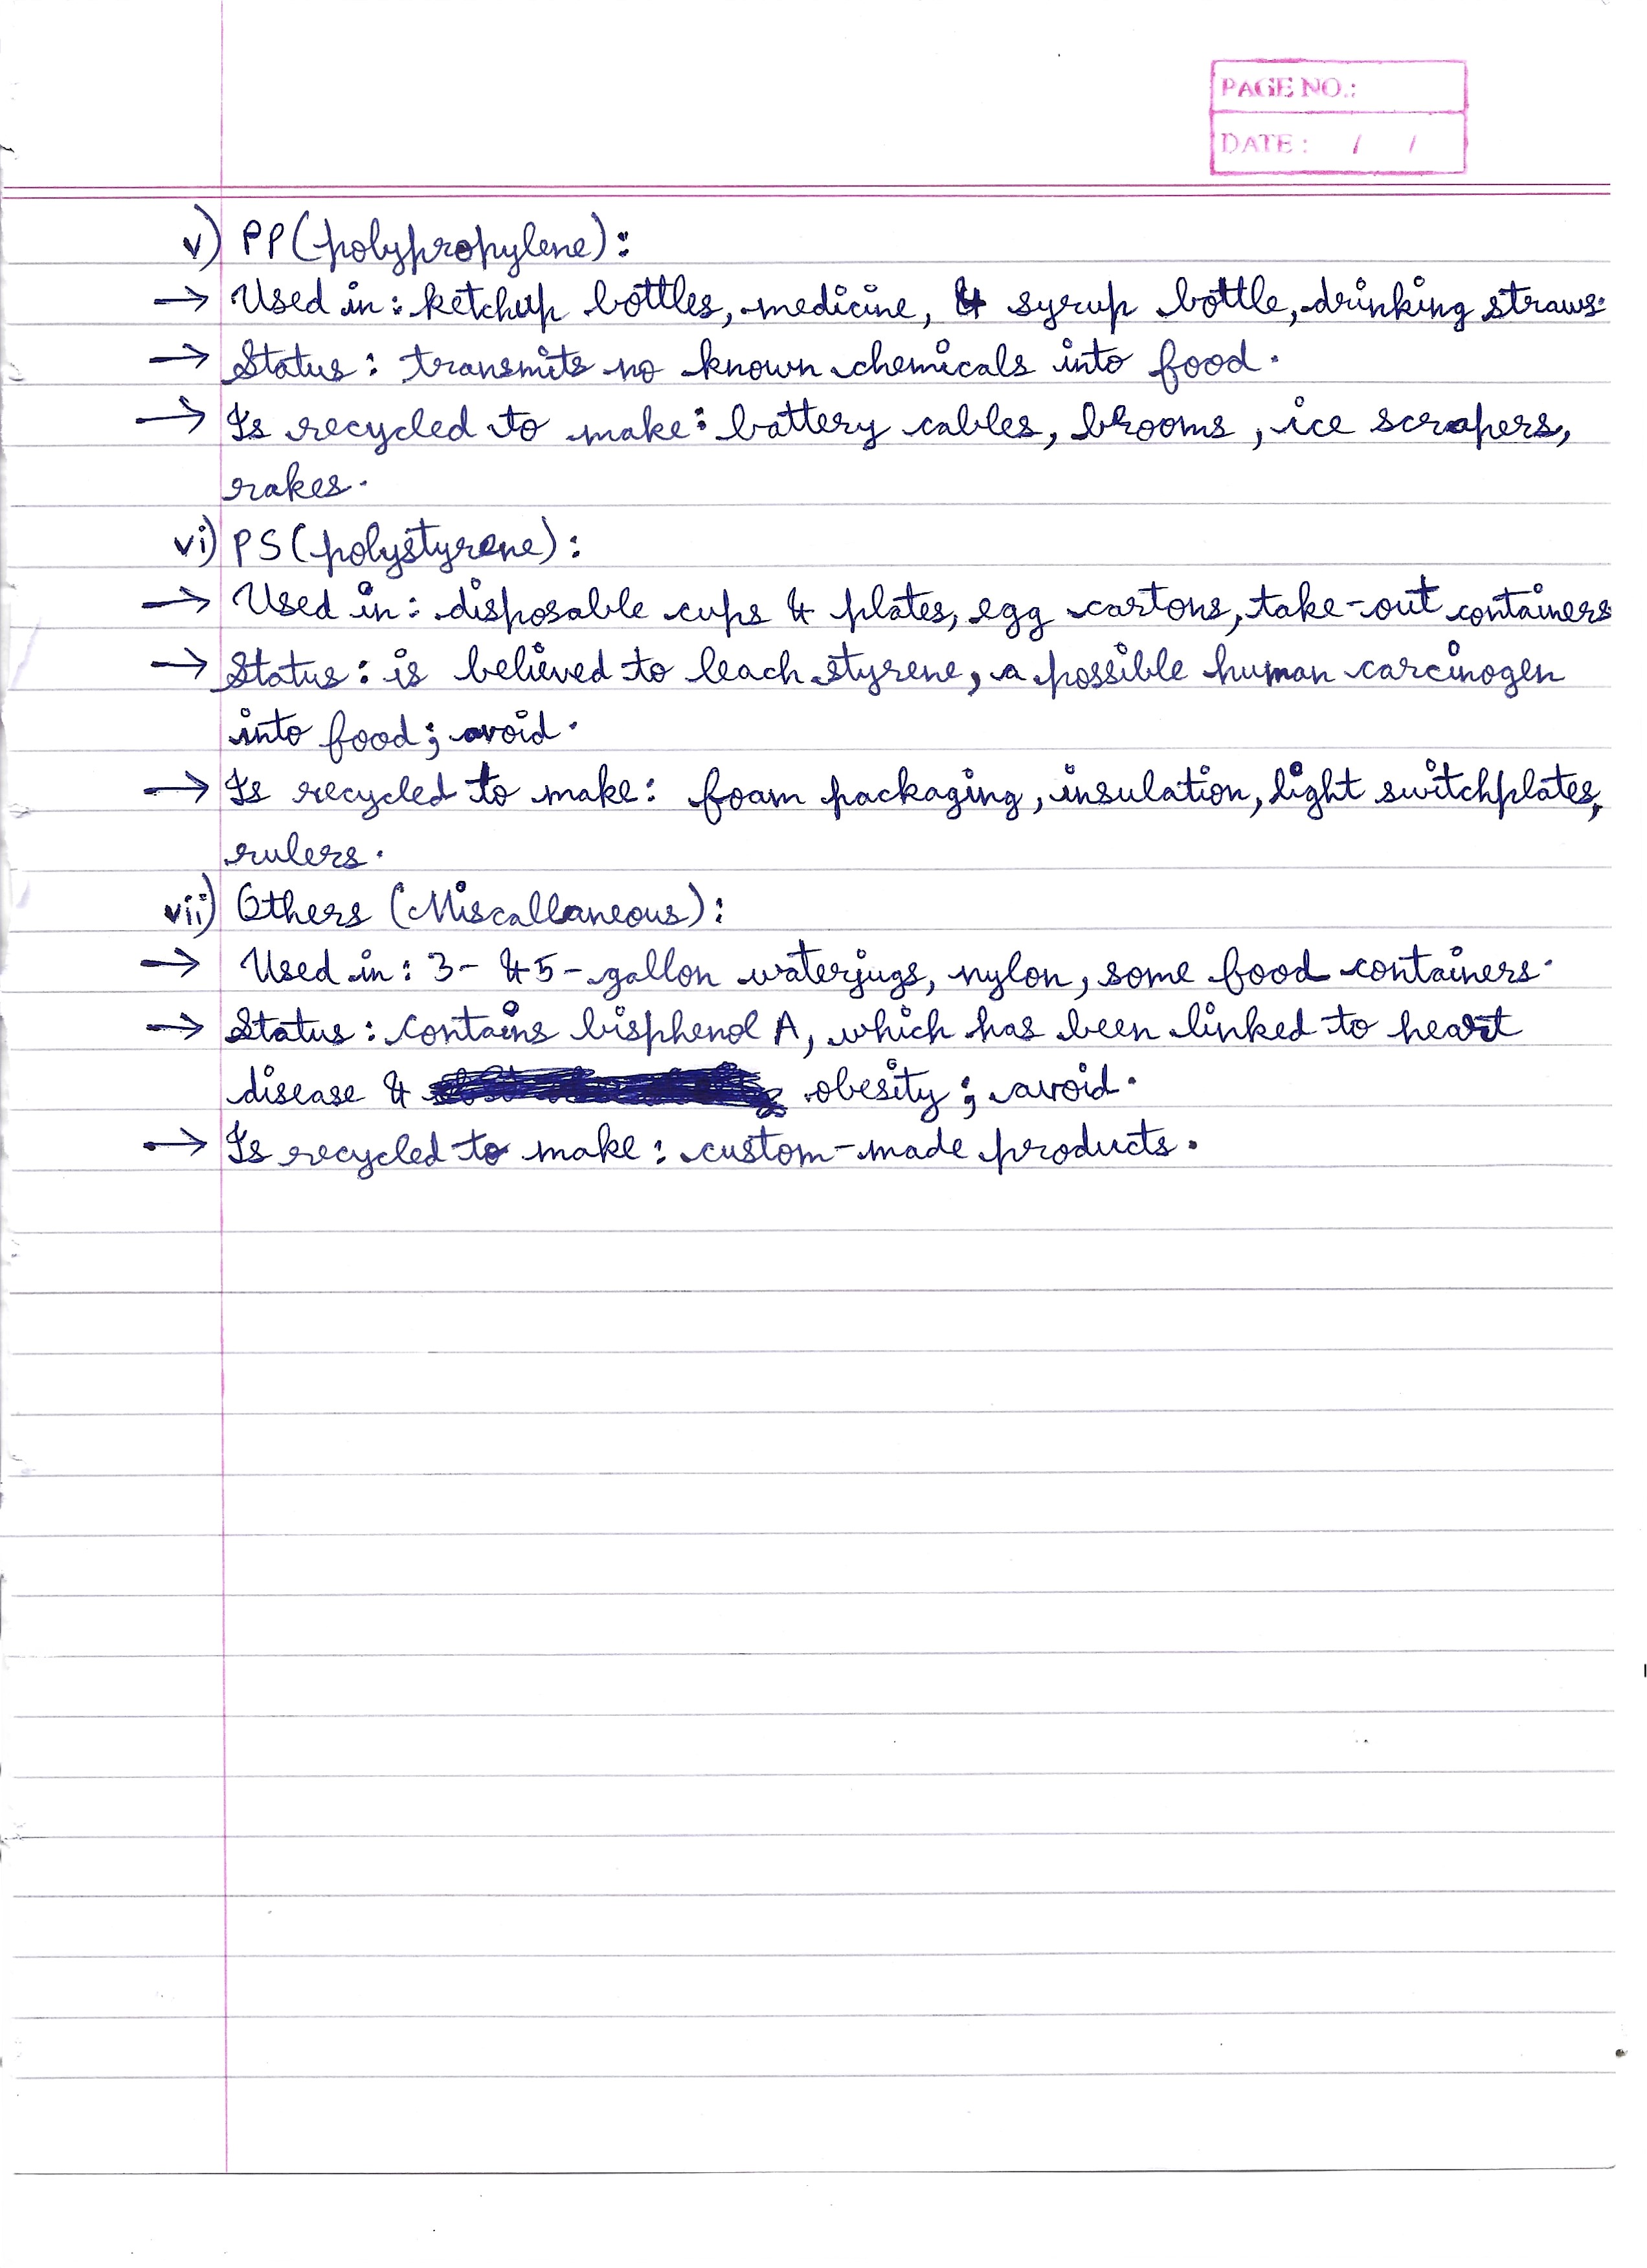 PAGE NO.:
DATE : / /
v) PP (polypropylene):
→ Used in: ketchup bottles, medicine, & syrup bottle, drinking straws.
→ Status: transmits no known chemicals into food.
→ Is recycled to make: battery cables, brooms, ice scrapers,
rakes.
vi) PS (polystyrene):
→ Used in: disposable cups & plates, egg cartons, take-out containers
→ Status: is believed to leach styrene, a possible human carcinogen
into food; avoid.
→ Is recycled to make: foam packaging, insulation, light switchplates,
rulers.
vii) Others (Miscallaneous):
→ Used in: 3- & 5-gallon waterjugs, nylon, some food containers.
→ Status: contains bisphenol A, which has been linked to heart
disease & obesity; avoid.
→ Is recycled to make: custom-made products.